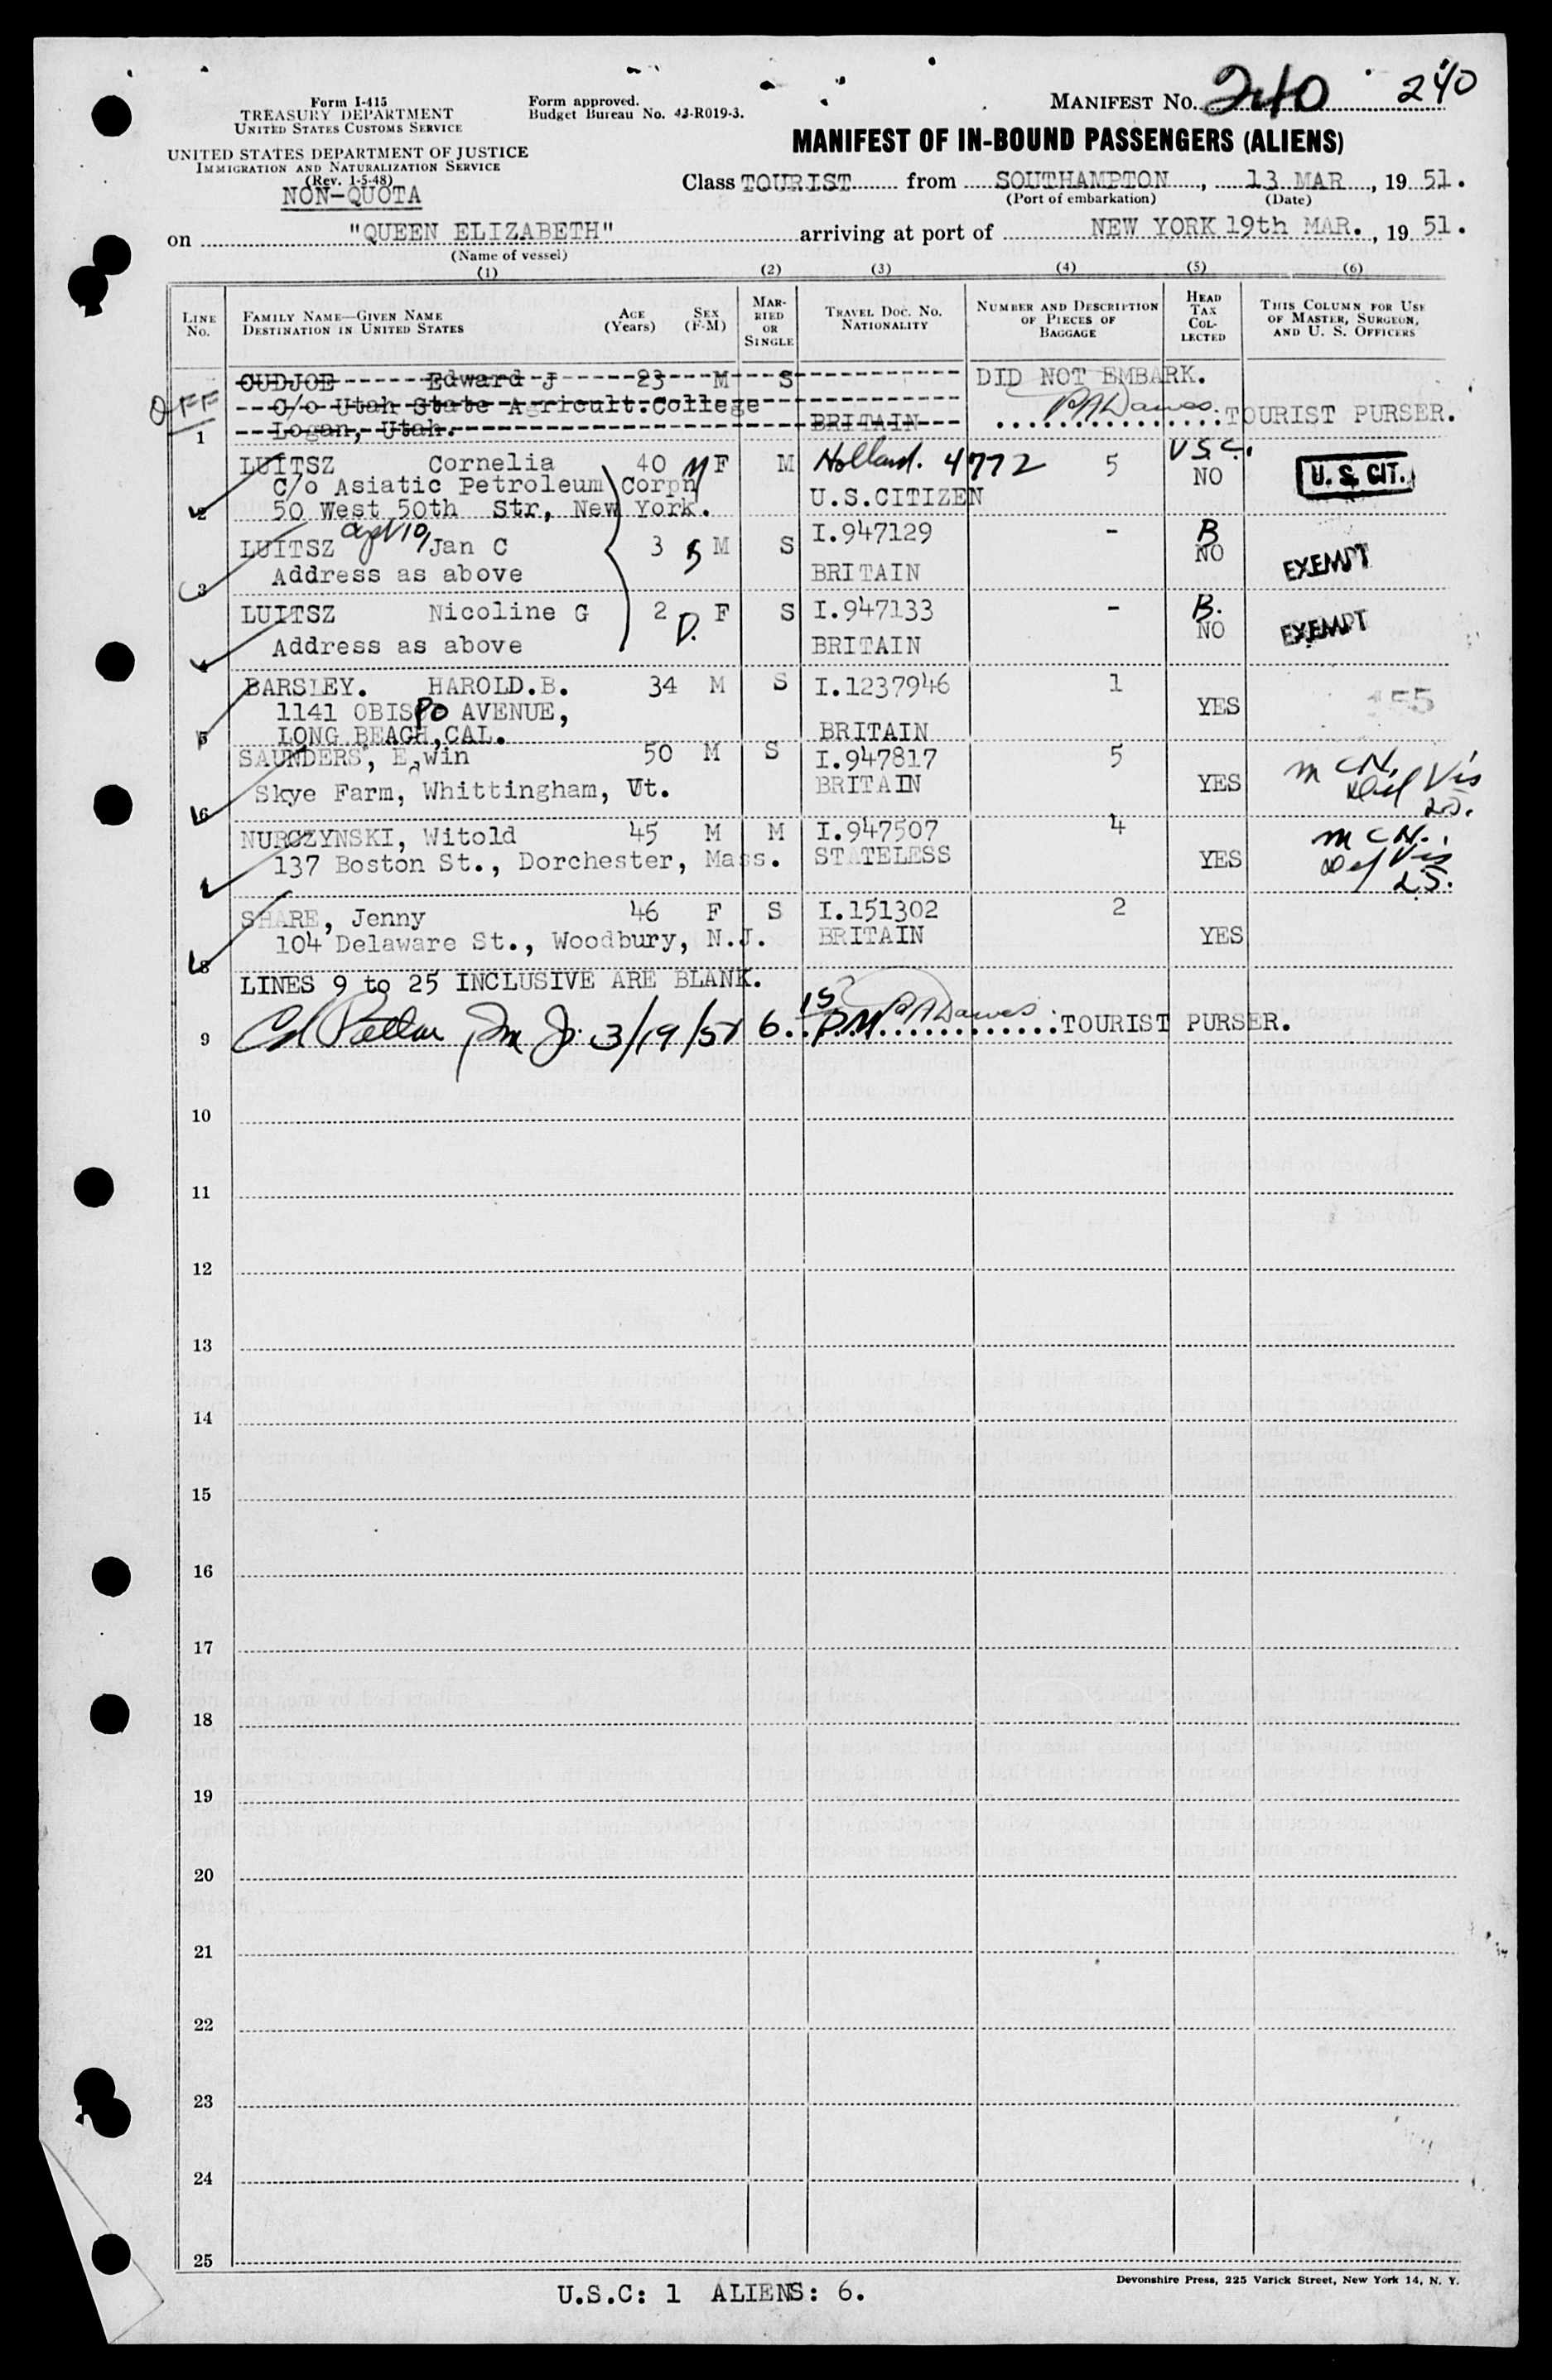 Form I-415
TREASURY DEPARTMENT
UNITED STATES CUSTOMS SERVICE
UNITED STATES DEPARTMENT OF JUSTICE
IMMIGRATION AND NATURALIZATION SERVICE
(Rev. 1-5-48)
NON-QUOTA
Form approved.
Budget Bureau No. 43-R019-3.
MANIFEST NO. 240 240
MANIFEST OF IN-BOUND PASSENGERS (ALIENS)
Class TOURIST from SOUTHAMPTON, 13 MAR, 19 51.
(Port of embarkation) (Date)
on "QUEEN ELIZABETH" arriving at port of NEW YORK 19th MAR., 19 51.
(Name of vessel)
(1) (2) (3) (4) (5) (6)
LINE No. FAMILY NAME—GIVEN NAME DESTINATION IN UNITED STATES AGE (Years) SEX (F-M) MARRIED OR SINGLE TRAVEL DOC. NO. NATIONALITY NUMBER AND DESCRIPTION OF PIECES OF BAGGAGE HEAD TAX COLLECTED THIS COLUMN FOR USE OF MASTER, SURGEON, AND U. S. OFFICERS
OUDJOE Edward J 23 M S DID NOT EMBARK.
OFF C/o Utah State Agricult. College
1 Logan, Utah. BRITAIN TOURIST PURSER.
LUITSZ Cornelia 40 M F M Holland. 4772 5 USC. NO U. S. CIT.
C/o Asiatic Petroleum Corpn
2 50 West 50th Str, New York. U.S.CITIZEN
LUITSZ Jan C 3 S M S I.947129 - B NO EXEMPT
3 Address as above BRITAIN
LUITSZ Nicoline G 2 D. F S I.947133 - B. NO EXEMPT
Address as above BRITAIN
BARSLEY. HAROLD.B. 34 M S I.1237946 1
1141 OBISPO AVENUE, YES 155
5 LONG BEACH,CAL. BRITAIN
SAUNDERS, E win 50 M S I.947817 5
6 Skye Farm, Whittingham, Vt. BRITAIN YES
NURCZYNSKI, Witold 45 M M I.947507 4
137 Boston St., Dorchester, Mass. STATELESS YES
SHARE, Jenny 46 F S I.151302 2
8 104 Delaware St., Woodbury, N.J. BRITAIN YES
LINES 9 to 25 INCLUSIVE ARE BLANK.
9 3/19/51 6.15 PM TOURIST PURSER.
10
11
12
13
14
15
16
17
18
19
20
21
22
23
24
25
Devonshire Press, 225 Varick Street, New York 14, N. Y.
U.S.C: 1 ALIENS: 6.